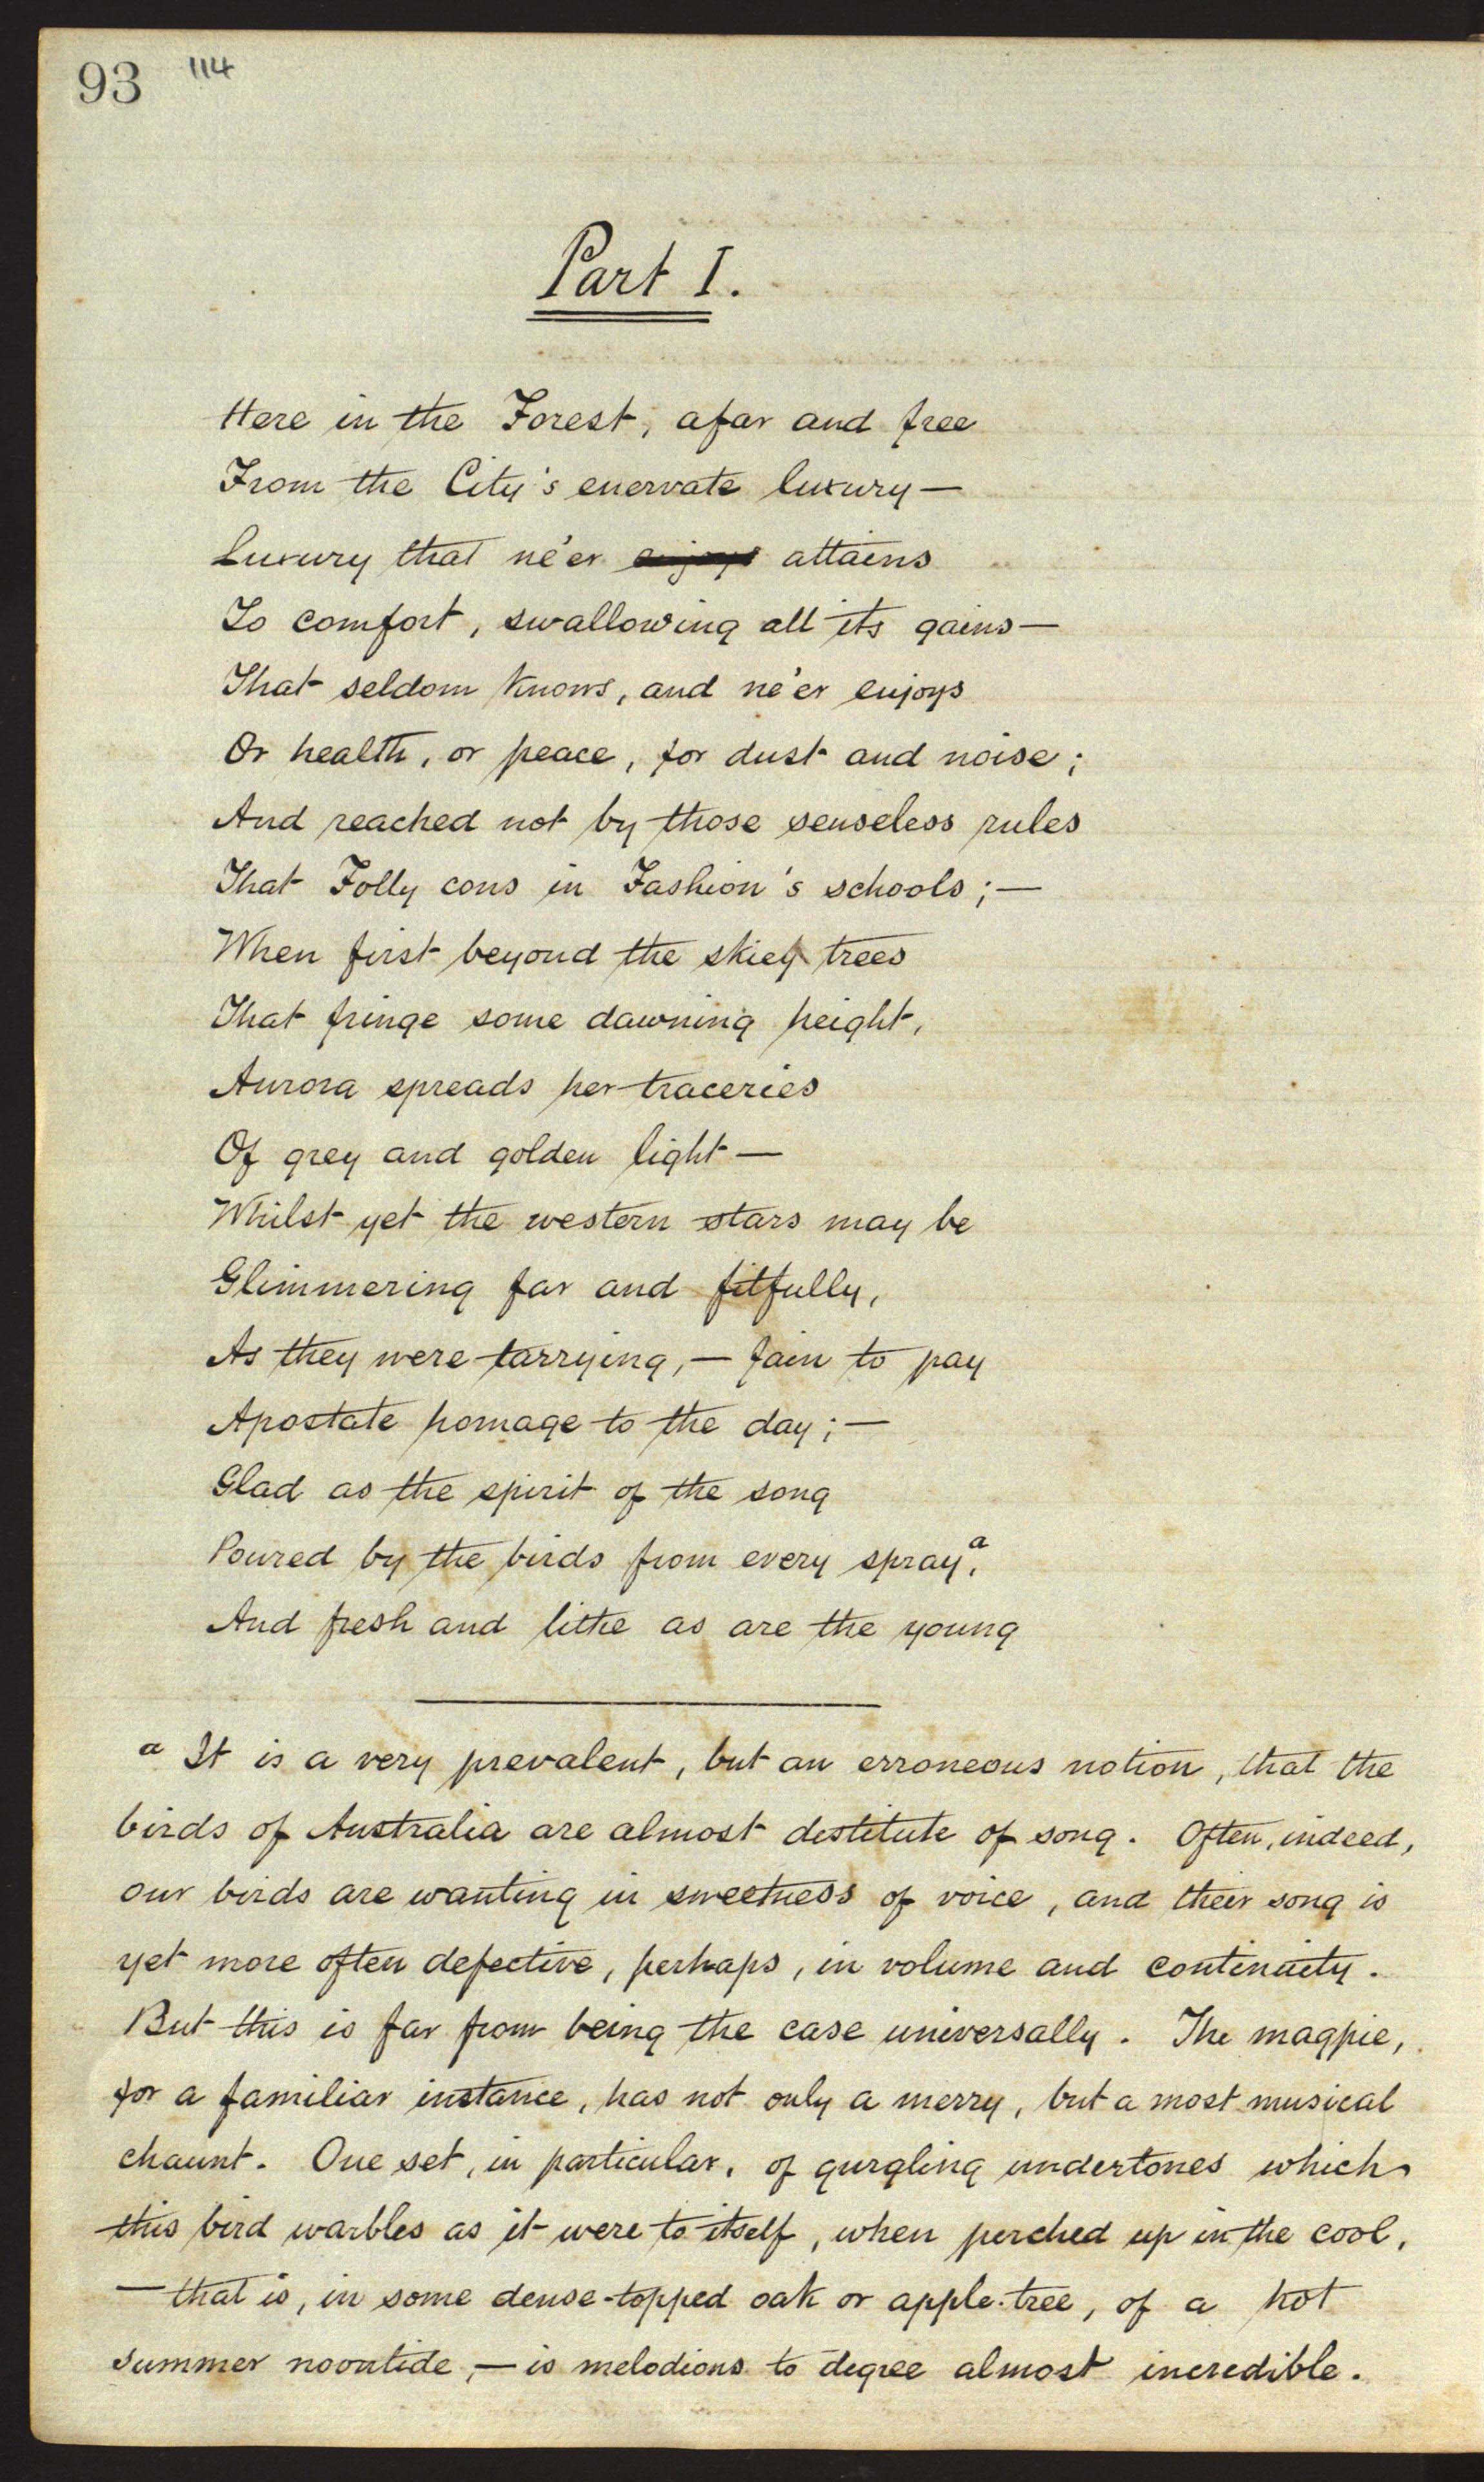 93 114
Part I.
Here in the Forest, afar and free
From the City's enervate luxury—
Luxury that ne'er enjoys attains
To comfort, swallowing all its gains—
That seldom knows, and ne'er enjoys
Or health, or peace, for dust and noise;
And reached not by those senseless rules
That Folly cons in Fashion's schools;—
When first beyond the skiey trees
That fringe some dawning height,
Aurora spreads her traceries
Of grey and golden light—
Whilst yet the western stars may be
Glimmering far and fitfully,
As they were tarrying,— fain to pay
Apostate homage to the day;—
Glad as the spirit of the song
Poured by the birds from every spray,a
And fresh and lithe as are the young
a It is a very prevalent, but an erroneous notion, that the
birds of Australia are almost destitute of song. Often, indeed,
our birds are wanting in sweetness of voice, and their song is
yet more often defective, perhaps, in volume and continuity.
But this is far from being the case universally. The magpie,
for a familiar instance, has not only a merry, but a most musical
chaunt. One set, in particular, of gurgling undertones which
this bird warbles as it were to itself, when perched up in the cool,
—that is, in some dense-topped oak or apple-tree, of a hot
summer noontide,— is melodious to degree almost incredible.